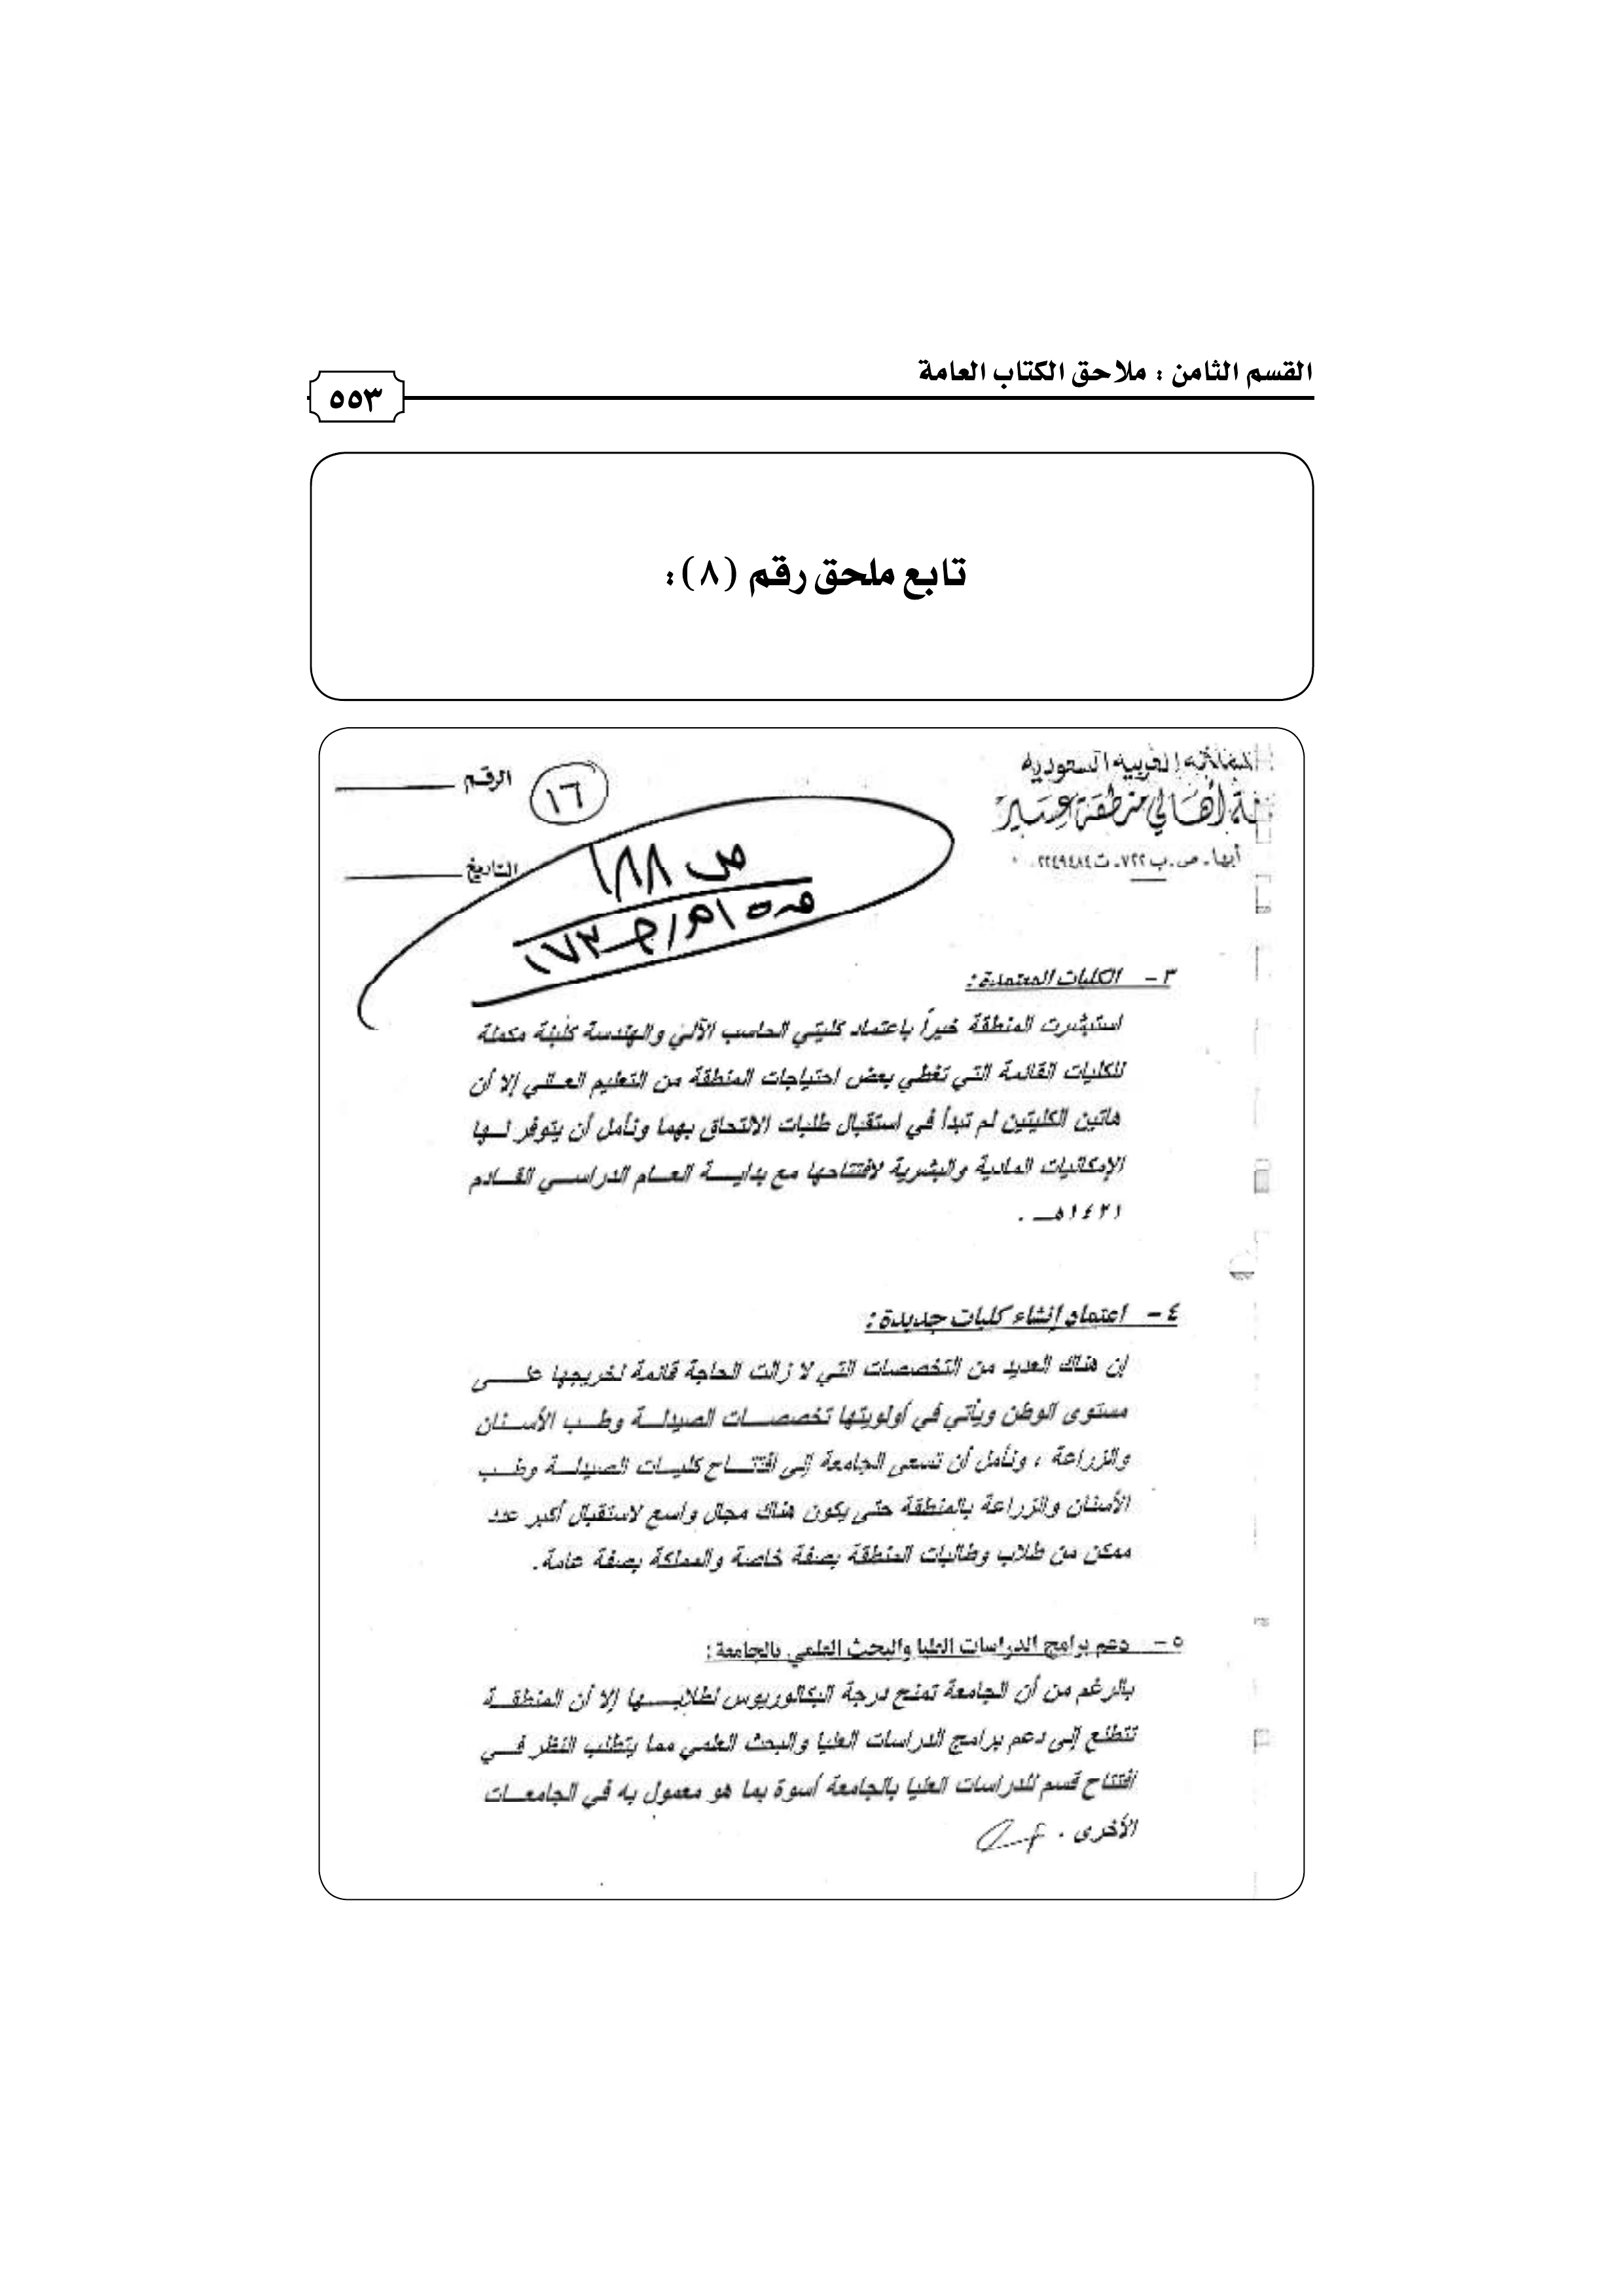 القسم الثامن : ملاحق الكتاب العامة
٥٥٣
تابع ملحق رقم (٨):
العربية السعودية
أهالي منطقة عسير
أبها . ص . ب ٧٢٢ . ت ٢٢٤٩٤٨٤
الرقم
١٦
التاريخ
ص ١٨٨
٣ - الكليات المعتمدة :
استبشرت المنطقة خيراً باعتماد كليتي الحاسب الآلي والهندسة كلبنة مكملة
للكليات القائمة التي تغطي بعض احتياجات المنطقة من التعليم العالي إلا أن
هاتين الكليتين لم تبدأ في استقبال طلبات الالتحاق بهما ونأمل أن يتوفر لها
الإمكانيات المادية والبشرية لافتتاحها مع بداية العام الدراسي القادم
١٤٢١هـ .
٤ - اعتماد إنشاء كليات جديدة :
إن هناك العديد من التخصصات التي لا زالت الحاجة قائمة لخريجها على
مستوى الوطن ويأتي في أولويتها تخصصات الصيدلة وطب الأسنان
والزراعة ، ونأمل أن تسعى الجامعة إلى افتتاح كليات الصيدلة وطب
الأسنان والزراعة بالمنطقة حتى يكون هناك مجال واسع لاستقبال أكبر عدد
ممكن من طلاب وطالبات المنطقة بصفة خاصة والمملكة بصفة عامة .
٥ - دعم برامج الدراسات العليا والبحث العلمي بالجامعة :
بالرغم من أن الجامعة تمنح درجة البكالوريوس لطلابها إلا أن المنطقة
تتطلع إلى دعم برامج الدراسات العليا والبحث العلمي مما يتطلب النظر في
افتتاح قسم للدراسات العليا بالجامعة أسوة بما هو معمول به في الجامعات
الأخرى .